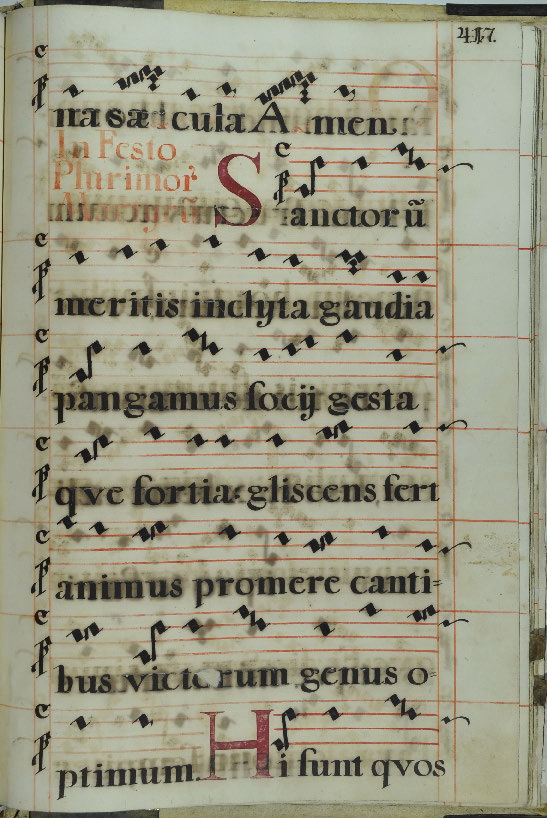 417.
na sæcula Amen.
In Festo
Plurimor.
Martyrũ
Sanctorũ
meritis inclyta gaudia
pangamus socij gesta
qve fortia: gliscens fert
animus promere canti=
bus victorum genus o=
ptimum. Hi sunt qvos